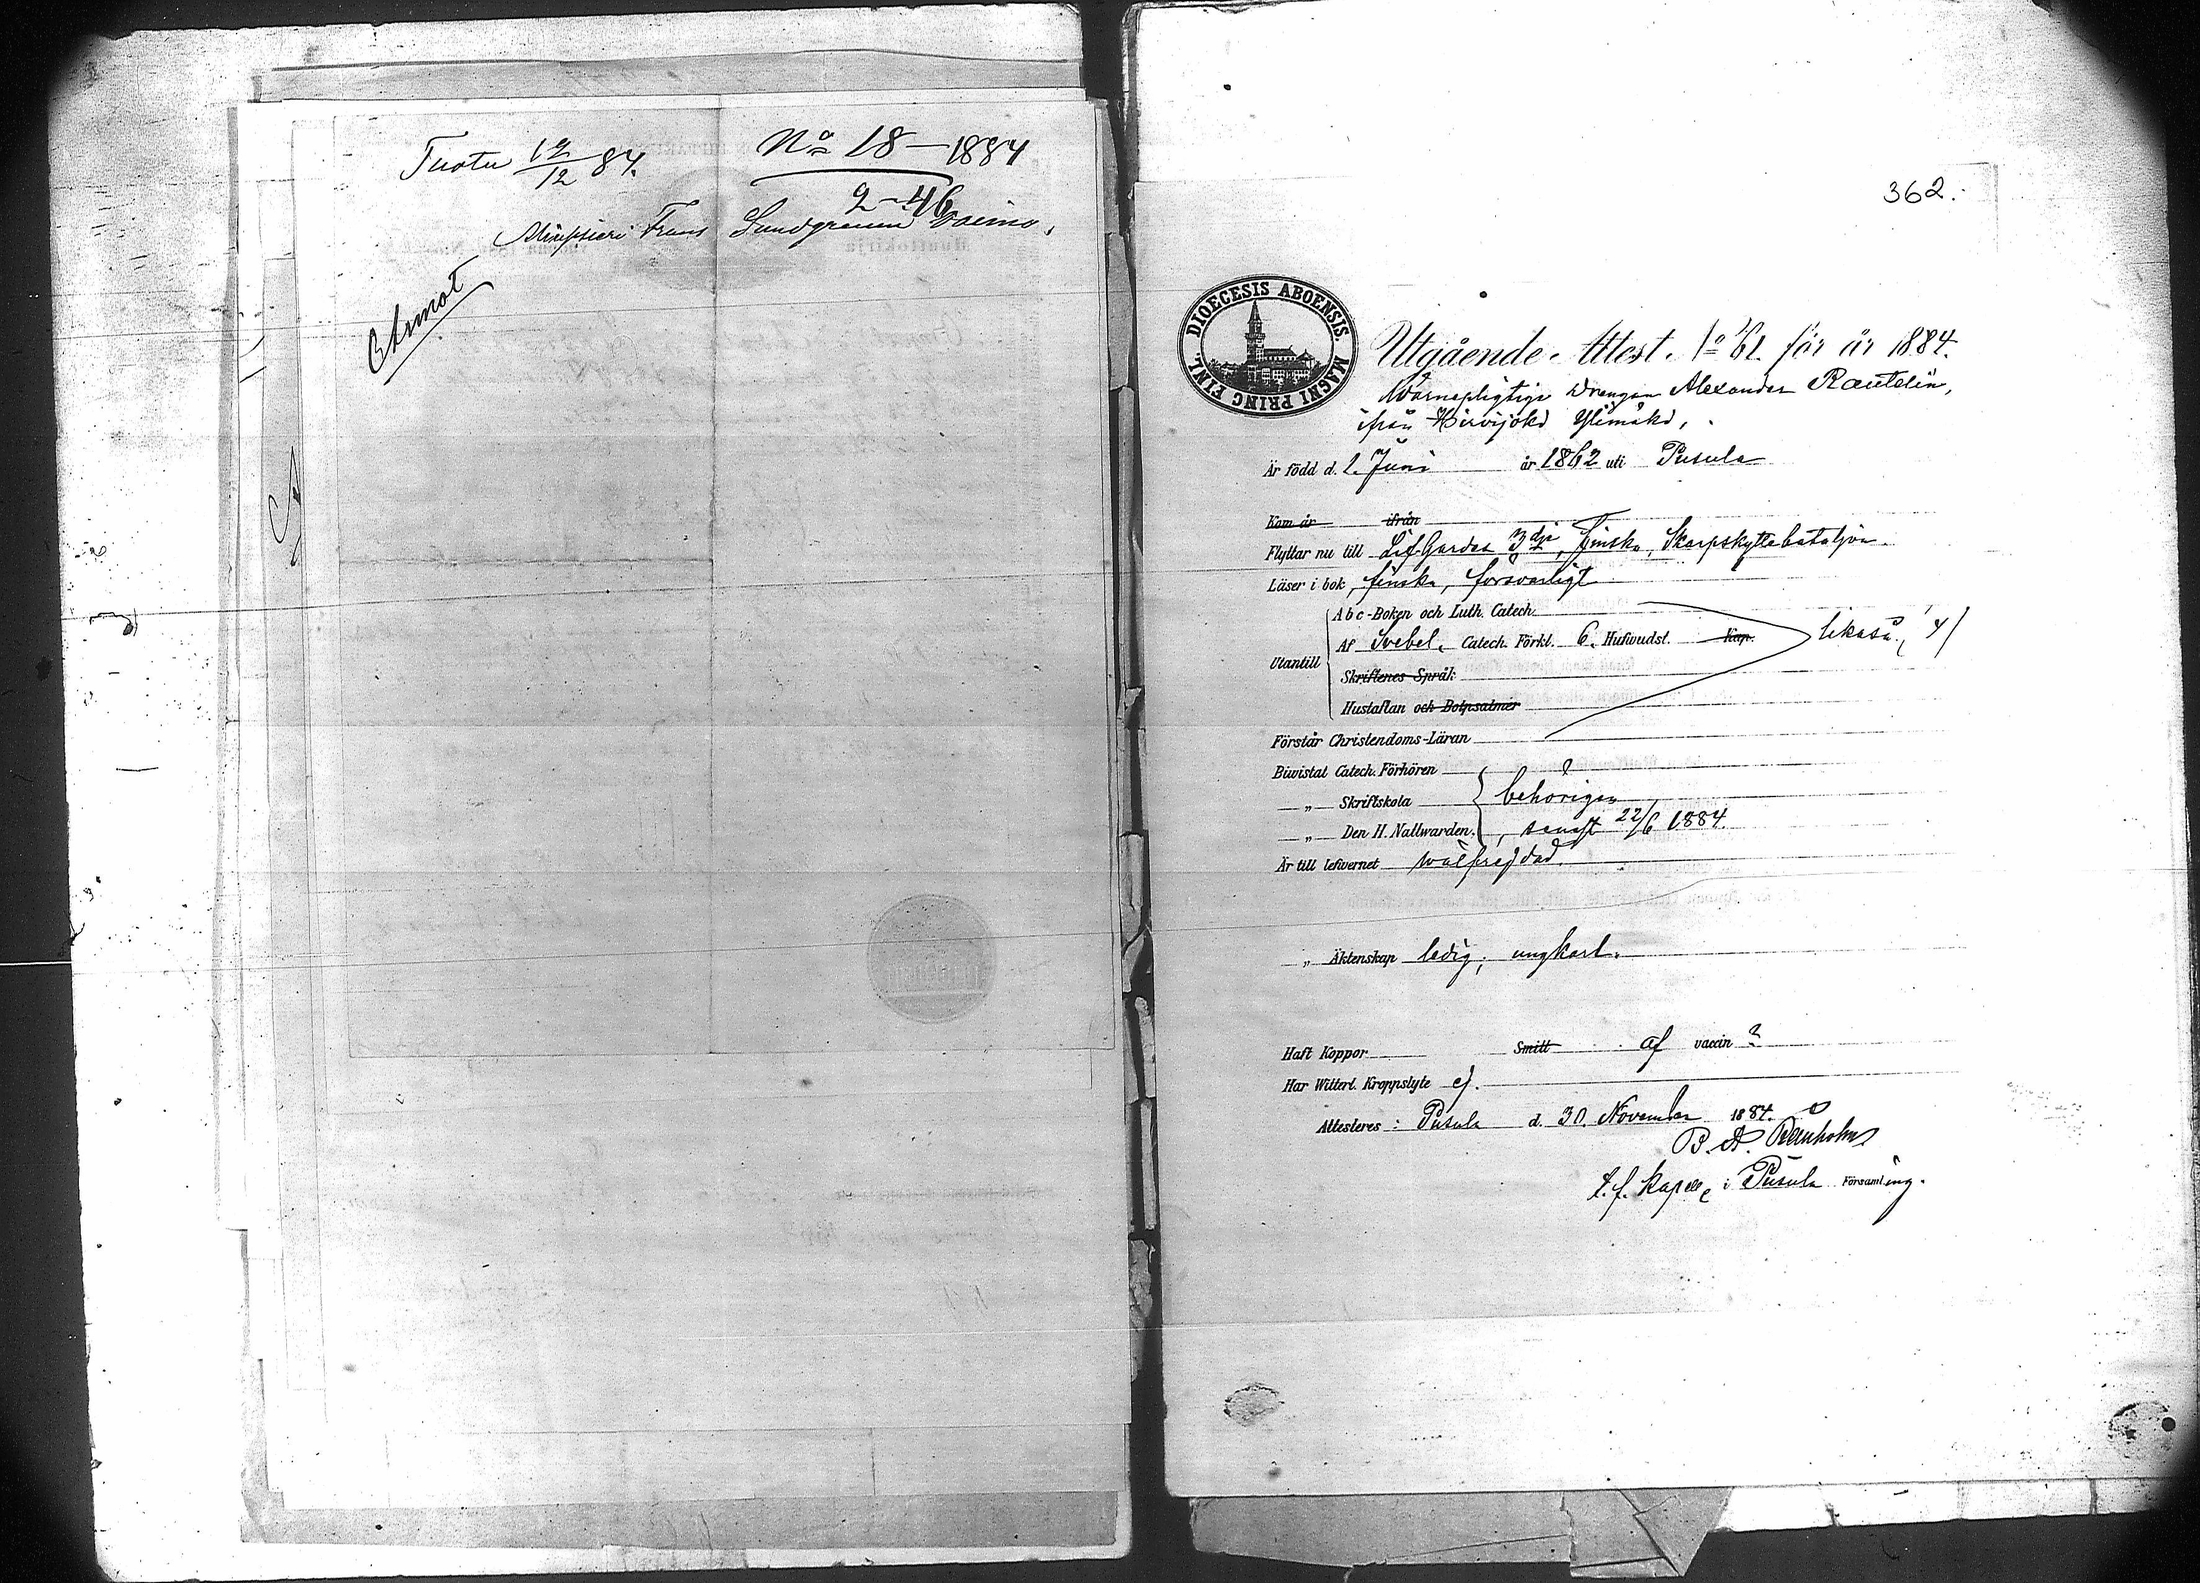 Tuotu 12/12 84.
No 18 – 1884
2–46
Frans Lundgrenin vaimo.
362.
DIOECESIS ABOENSIS. MAGNI PRINC FINL.
Utgående Attest. No 61. för år 1884.
Wärnepligtige Drengen Alexander Rautelin,
ifrån Hirvijoki Ylimäki,
Är född d. 2. Juni år 1862 uti Pusula
Kom år ifrån
Flyttar nu till Lif Gardes 3dje, Finska, Skarpskyttebataljon.
Läser i bok, finska, försvarligt
Utantill
Abc-Boken och Luth. Catech.
Af Svebel. Catech. Förkl. 6. Hufwudst. Kap. likaså.
Skriftenes Språk
Hustaflan och Botpsalmer
Förstår Christendoms-Läran
Biwistat Catech. Förhören
„ Skriftskola behörigen
„ Den H. Nattwarden, senast 22/6 1884.
Är till lefwernet wälfrejdad.
„ Äktenskap ledig, ungkarl.
Haft Koppor Smitt af vaccin ?
Har Witterl. Kroppslyte ej.
Attesteres: Pusula d. 30. November 1884.
B. A.
t. f. Kapell. i Pusula Församling.